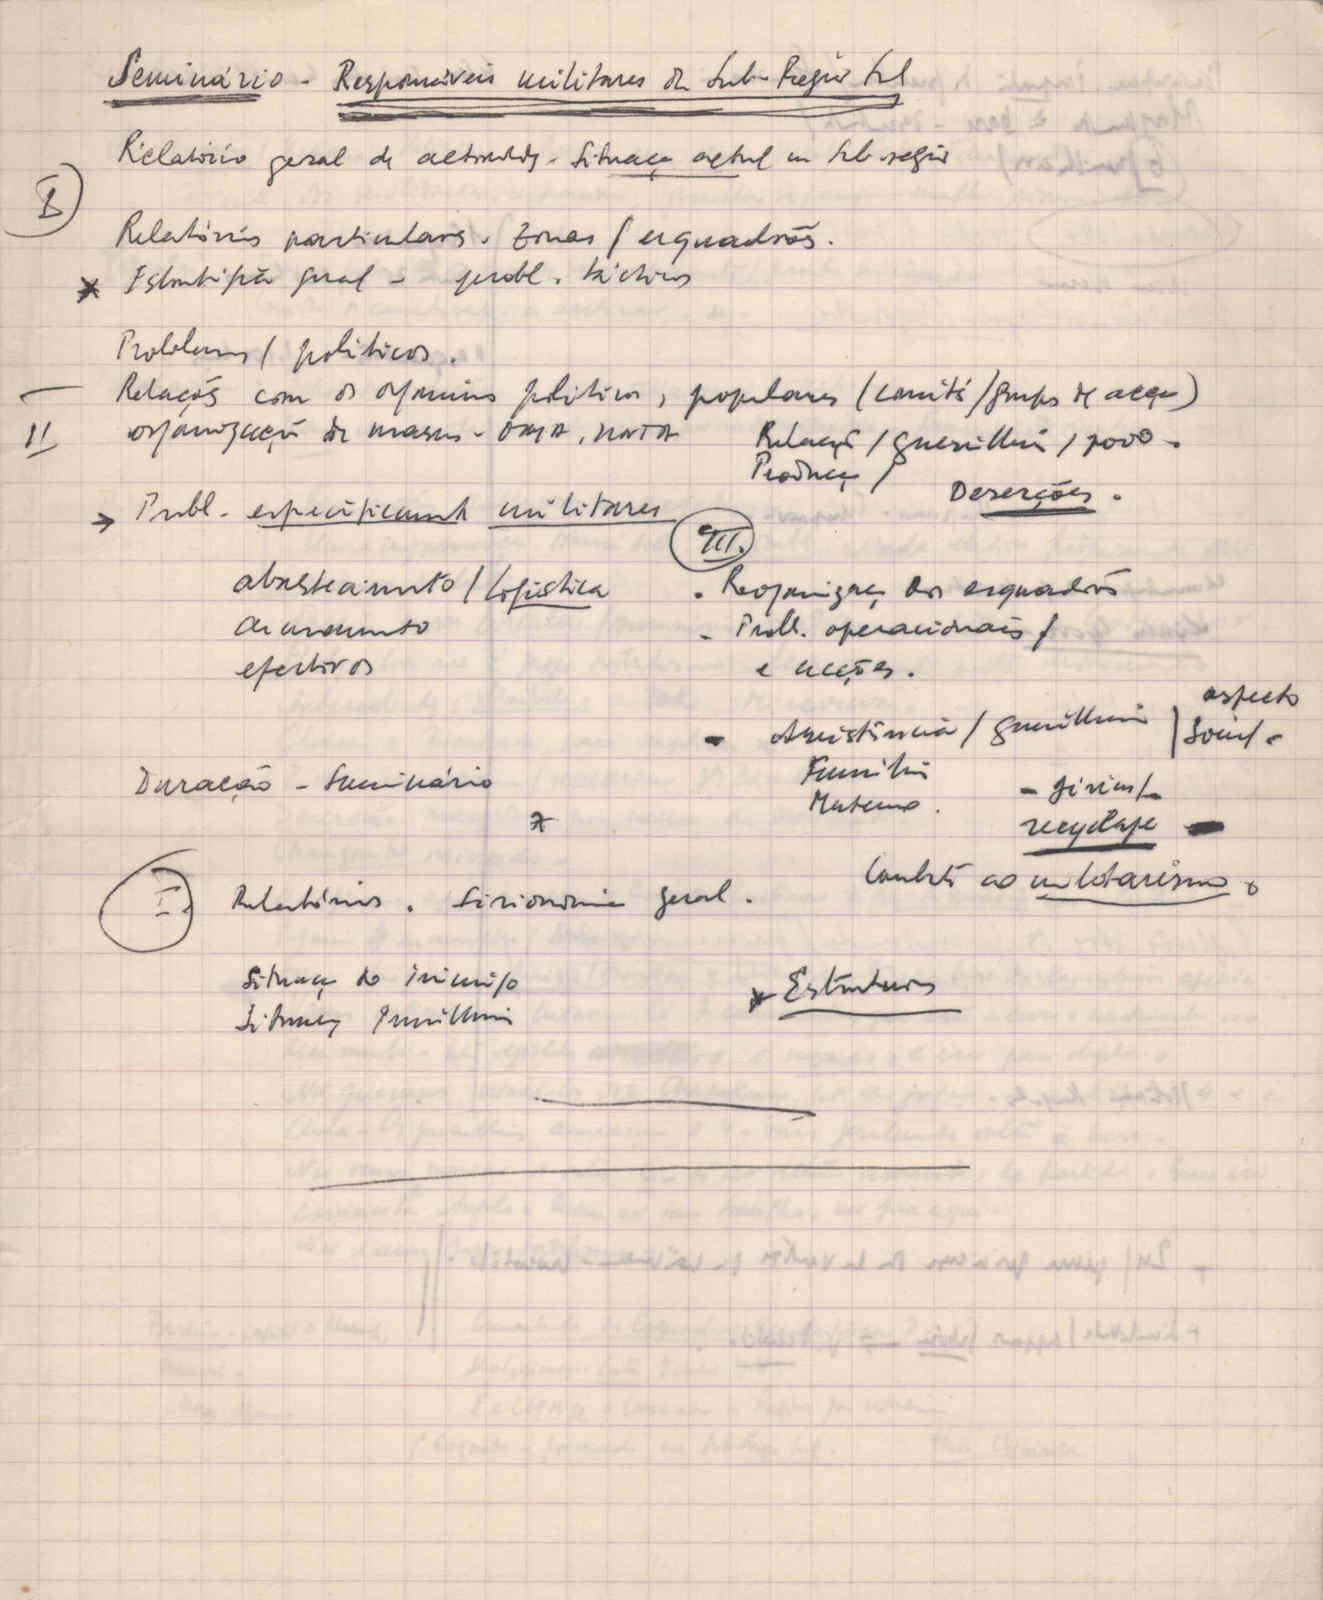 Seminário - Responsáveis militares da Sub-Região Sul
Relatório geral de - Situação actual na Sub-região
I
Relatórios particulares. Zonas / esquadrões.
* geral - probl. tácticos
Problemas / políticos.
Relações com os políticos, populares (comité / grupo de acção)
II
organização de massas - OMA, UNTA
Relação / guerrilha / povo -
Produção /
Deserções.
→ Probl. especificamente militares
III.
abastecimento / Logística
armamento
efectivos
- Reorganizaç dos esquadrões
- Probl. operacionais /
e acções.
- Assistência / guerrilheiro / aspecto social -
Família
Material.
Duração - Seminário
*
reciclage -
Combate ao militarismo.
I.
Relatórios. Fisionomia geral.
Situaç do inimigo
Situaç guerrilheira
* Estruturas